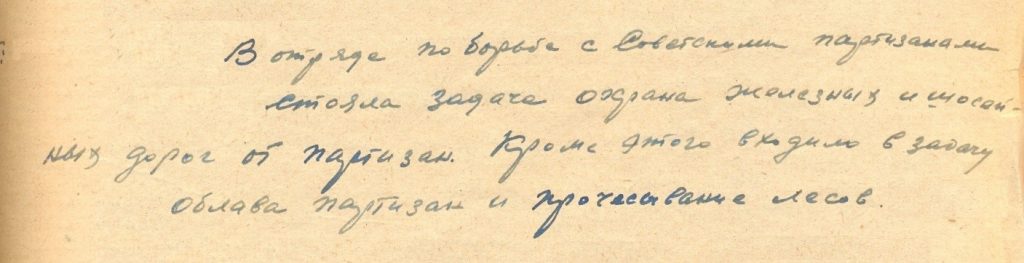 В отряде по борьбе с Советскими партизанами
стояла задача охрана железных и шосей-
ных дорог от партизан. Кроме этого входило в задачу
облава партизан и прочесывание лесов.